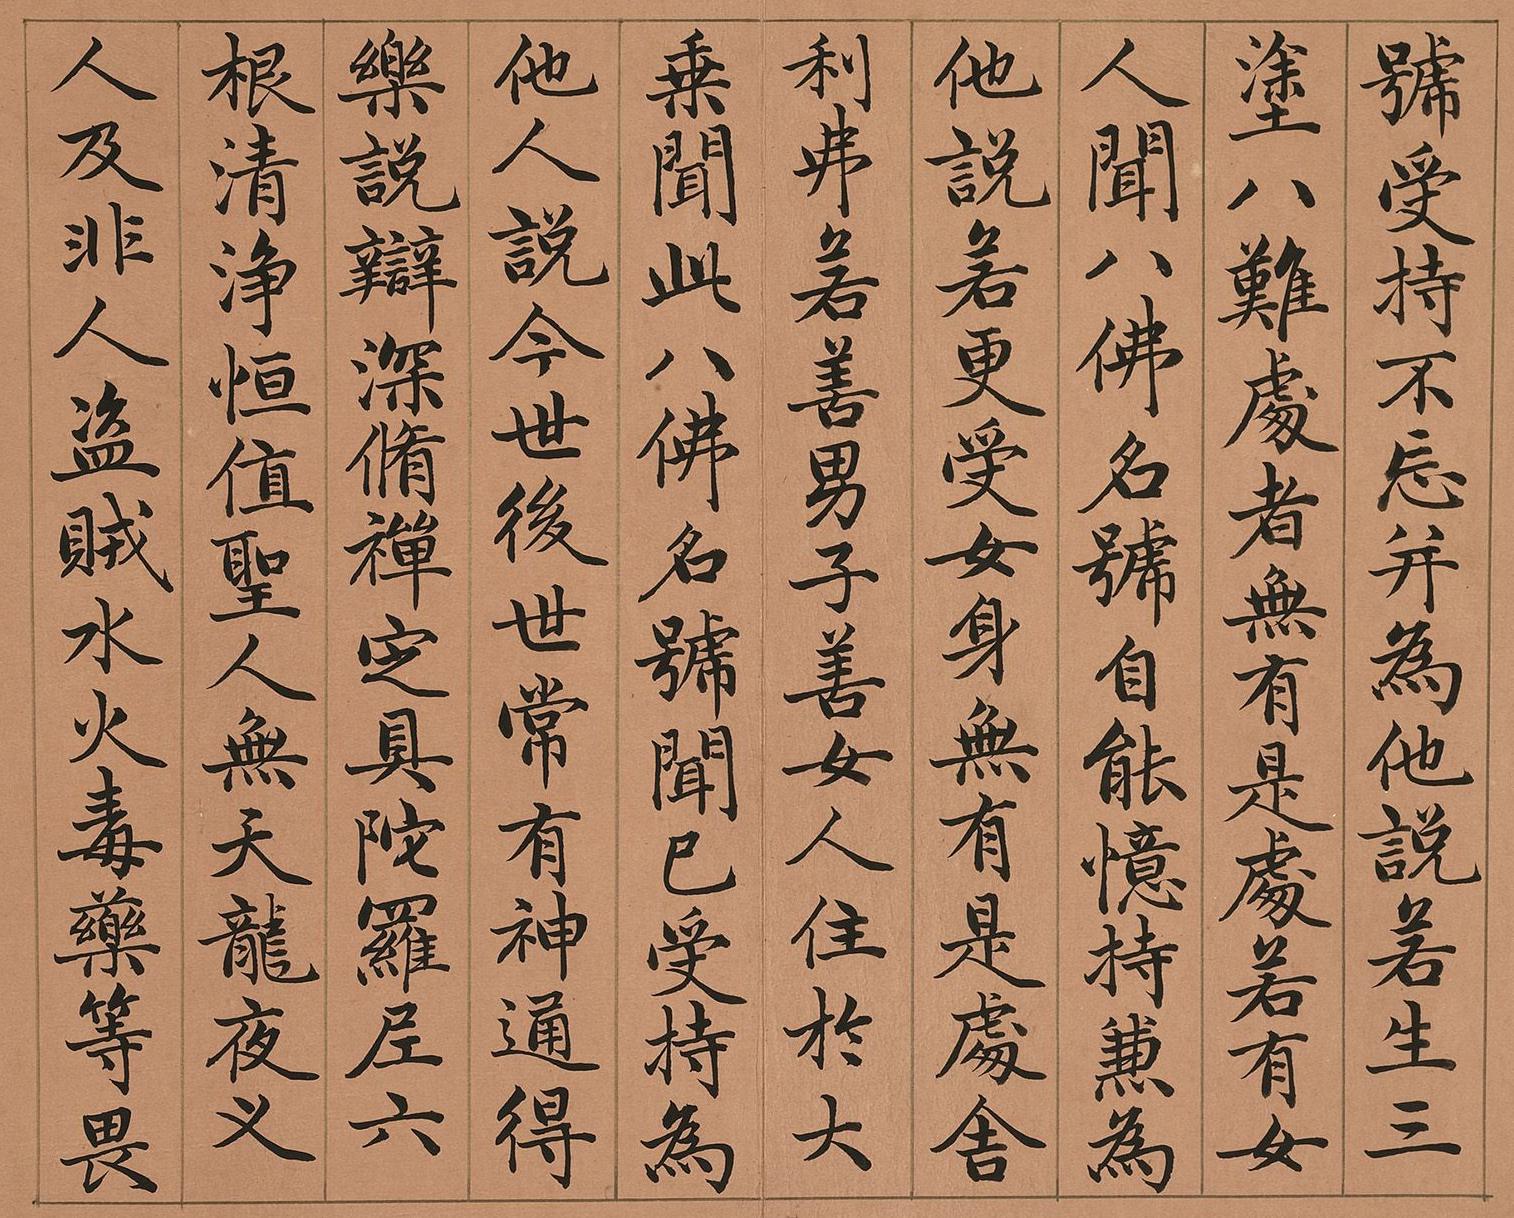 號受持不忘并為他説若生三
塗八難處者無有是處若有女
人聞八佛名號自能憶持兼為
他説若更受女身無有是處舍
利弗若善男子善女人住於大
乗聞此八佛名號聞已受持為
他人説今世後世常有神通得
樂説辯深脩禪定具陀羅尼六
根清浄恒值聖人無天龍夜义
人及非人盗賊水火毒藥等畏